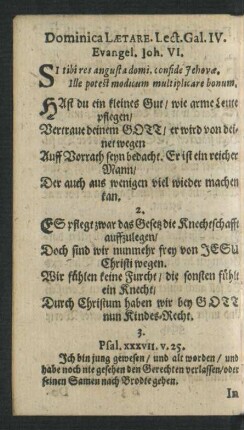 Dominica LÆTARE. Lect. Gal. IV.
Evangel. Joh. VI.
SI tibi res angusta domi. confide Jehovæ.
Ille potest modicum multiplicare bonum.
HAst du ein kleines Gut / wie arme Leute
pflegen /
Vertraue deinem GOTT / er wird von dei-
netwegen
Auff Vorrath seyn bedacht. Er ist ein reicher
Mann /
Der auch aus wenigen viel wieder machen
kan.
2.
ES pflegt zwar das Gesetz die Knechtschafft
auffzulegen /
Doch sind wir nunmehr frey von JESU
Christi wegen.
Wir fühlen keine Furcht / die sonsten fühlt
ein Knecht /
Durch Christum haben wir bey GOTT
nun Kindes-Recht.
3.
Psal. XXXVII. v. 25.
Ich bin jung gewesen / und alt worden / und
habe noch nie gesehen den Gerechten verlassen / oder
seinen Samen nach Brodte gehen.
In